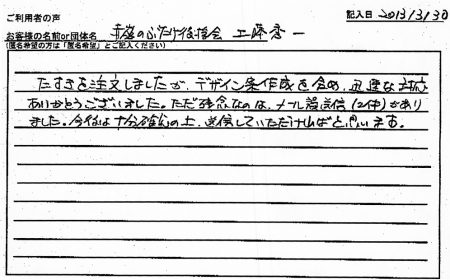 ご利用者の声
記入日 2013/3/30
お客様の名前or団体名 赤嶺のぶたけ後援会 工藤彦一
(匿名希望の方は「匿名希望」とご記入ください)
たすきを注文しましたが、デザイン案作成を含め、迅速な対応
ありがとうございました。ただ残念なのは、メール誤送信(2件)があり
ました。今後は十分確認の上、送信していただければと思います。